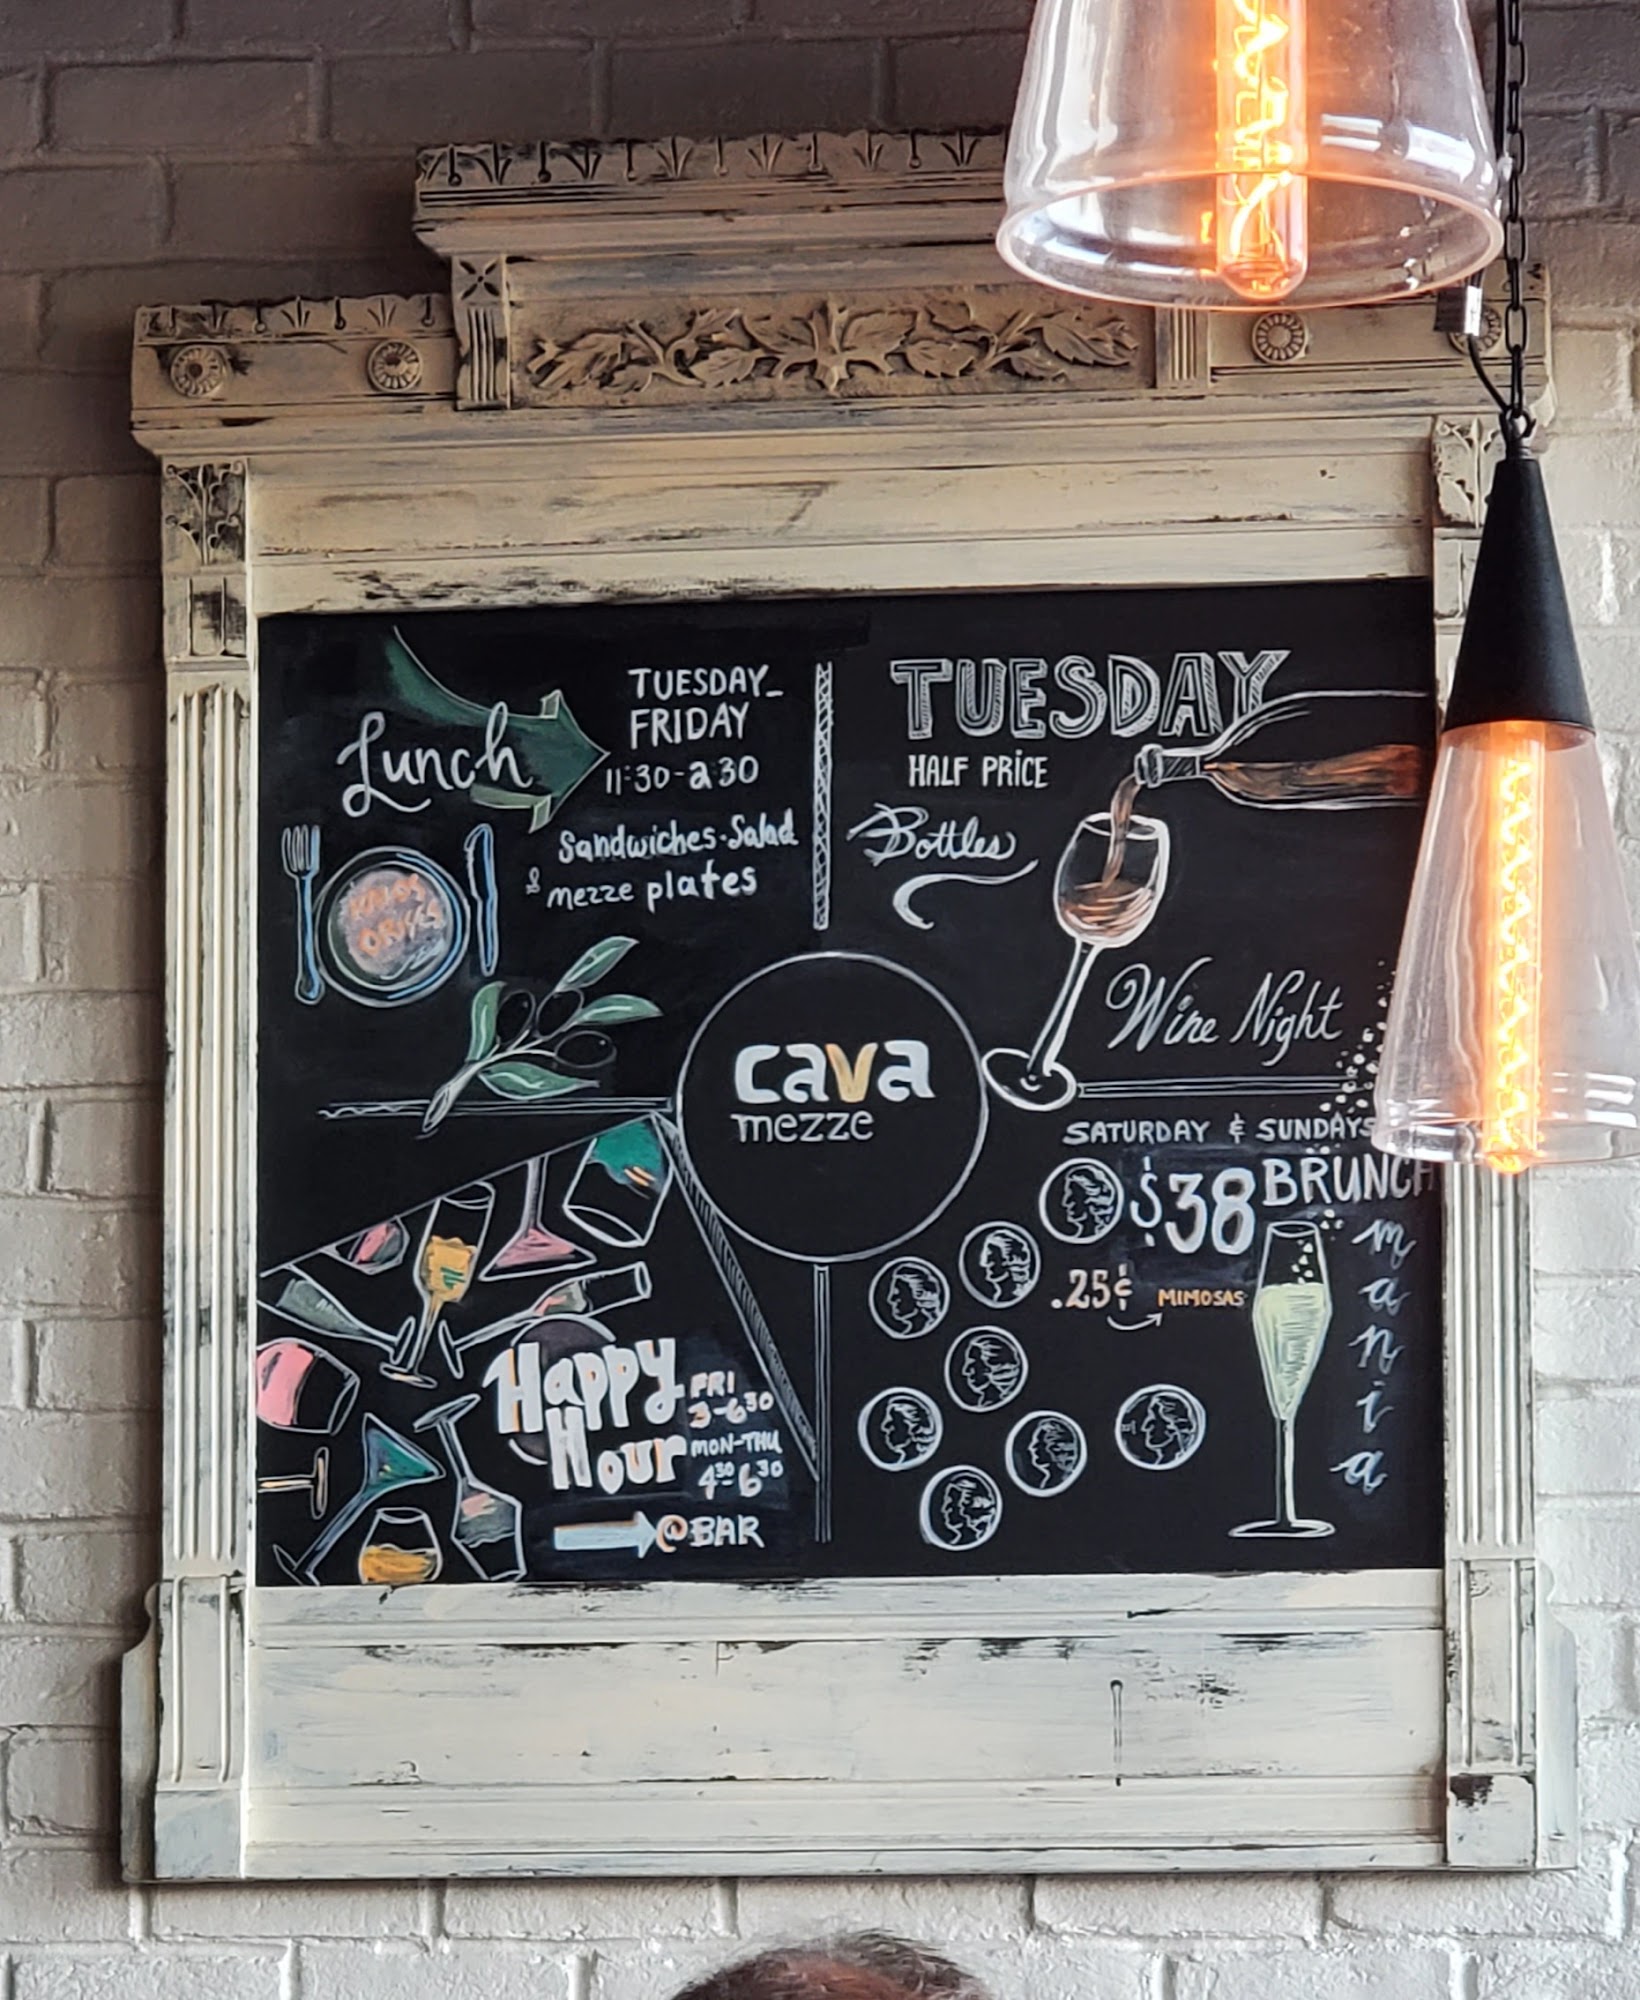 Lunch
TUESDAY-
FRIDAY
11:30-230
Sandwiches·Salad
& mezze plates
TUESDAY
HALF PRICE
Bottles
Wine Night
cava
mezze
SATURDAY & SUNDAYS
$38 BRUNCH
mania
.25¢ MIMOSAS
Happy
Hour
FRI
3-630
MON-THU
430-630
@BAR